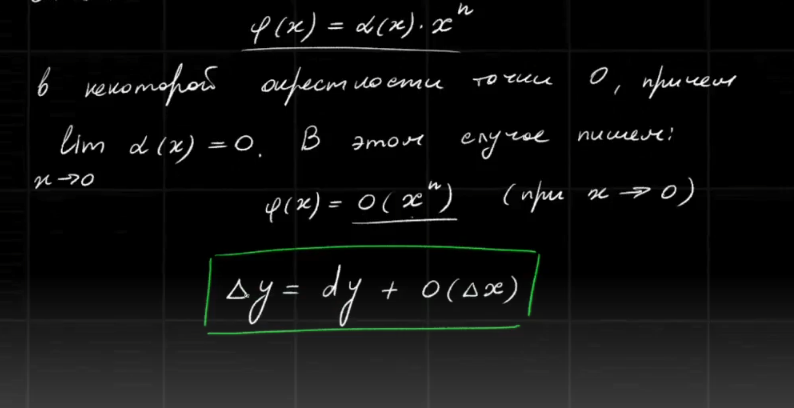 φ(x) = α(x) · xⁿ
в некоторой окрестности точки 0, причем
lim α(x) = 0. В этом случае пишем:
x→0
φ(x) = o(xⁿ) (при x → 0)
Δy = dy + o(Δx)